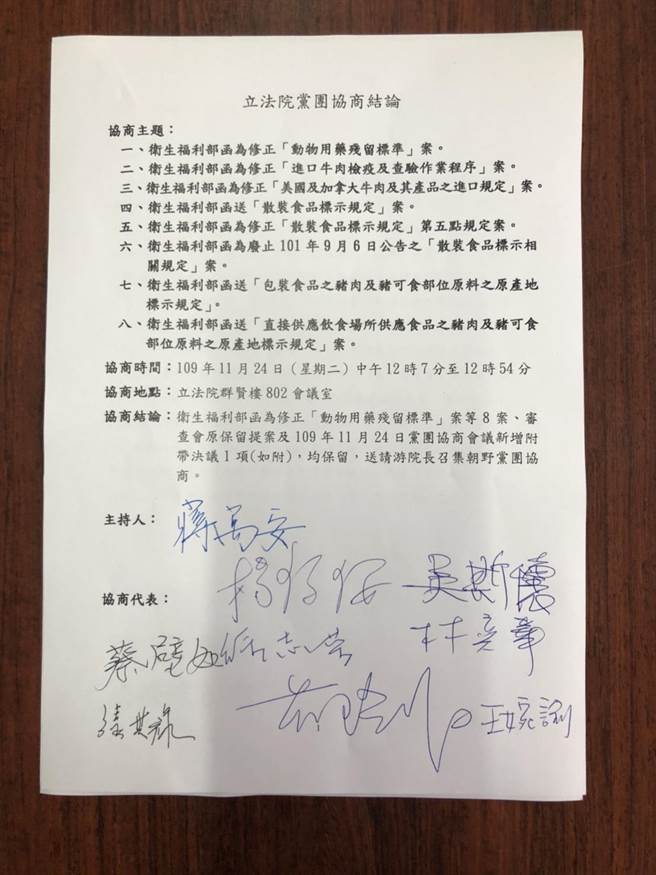 立法院黨團協商結論
協商主題：
一、衛生福利部函為修正「動物用藥殘留標準」案。
二、衛生福利部函為修正「進口牛肉檢疫及查驗作業程序」案。
三、衛生福利部函為修正「美國及加拿大牛肉及其產品之進口規定」案。
四、衛生福利部函送「散裝食品標示規定」案。
五、衛生福利部函為修正「散裝食品標示規定」第五點規定案。
六、衛生福利部函為廢止 101 年 9 月 6 日公告之「散裝食品標示相
關規定」案。
七、衛生福利部函送「包裝食品之豬肉及豬可食部位原料之原產地
標示規定」。
八、衛生福利部函送「直接供應飲食場所供應食品之豬肉及豬可食
部位原料之原產地標示規定」案。
協商時間：109 年 11 月 24 日（星期二）中午 12 時 7 分至 12 時 54 分
協商地點：立法院群賢樓 802 會議室
協商結論：衛生福利部函為修正「動物用藥殘留標準」案等 8 案、審
查會原保留提案及 109 年 11 月 24 日黨團協商會議新增附
帶決議 1 項(如附)，均保留，送請游院長召集朝野黨團協
商。
主持人：蔣萬安
協商代表：
吳斯懷
林奕華
蔡壁如 徐志榮
張其祿
王婉諭